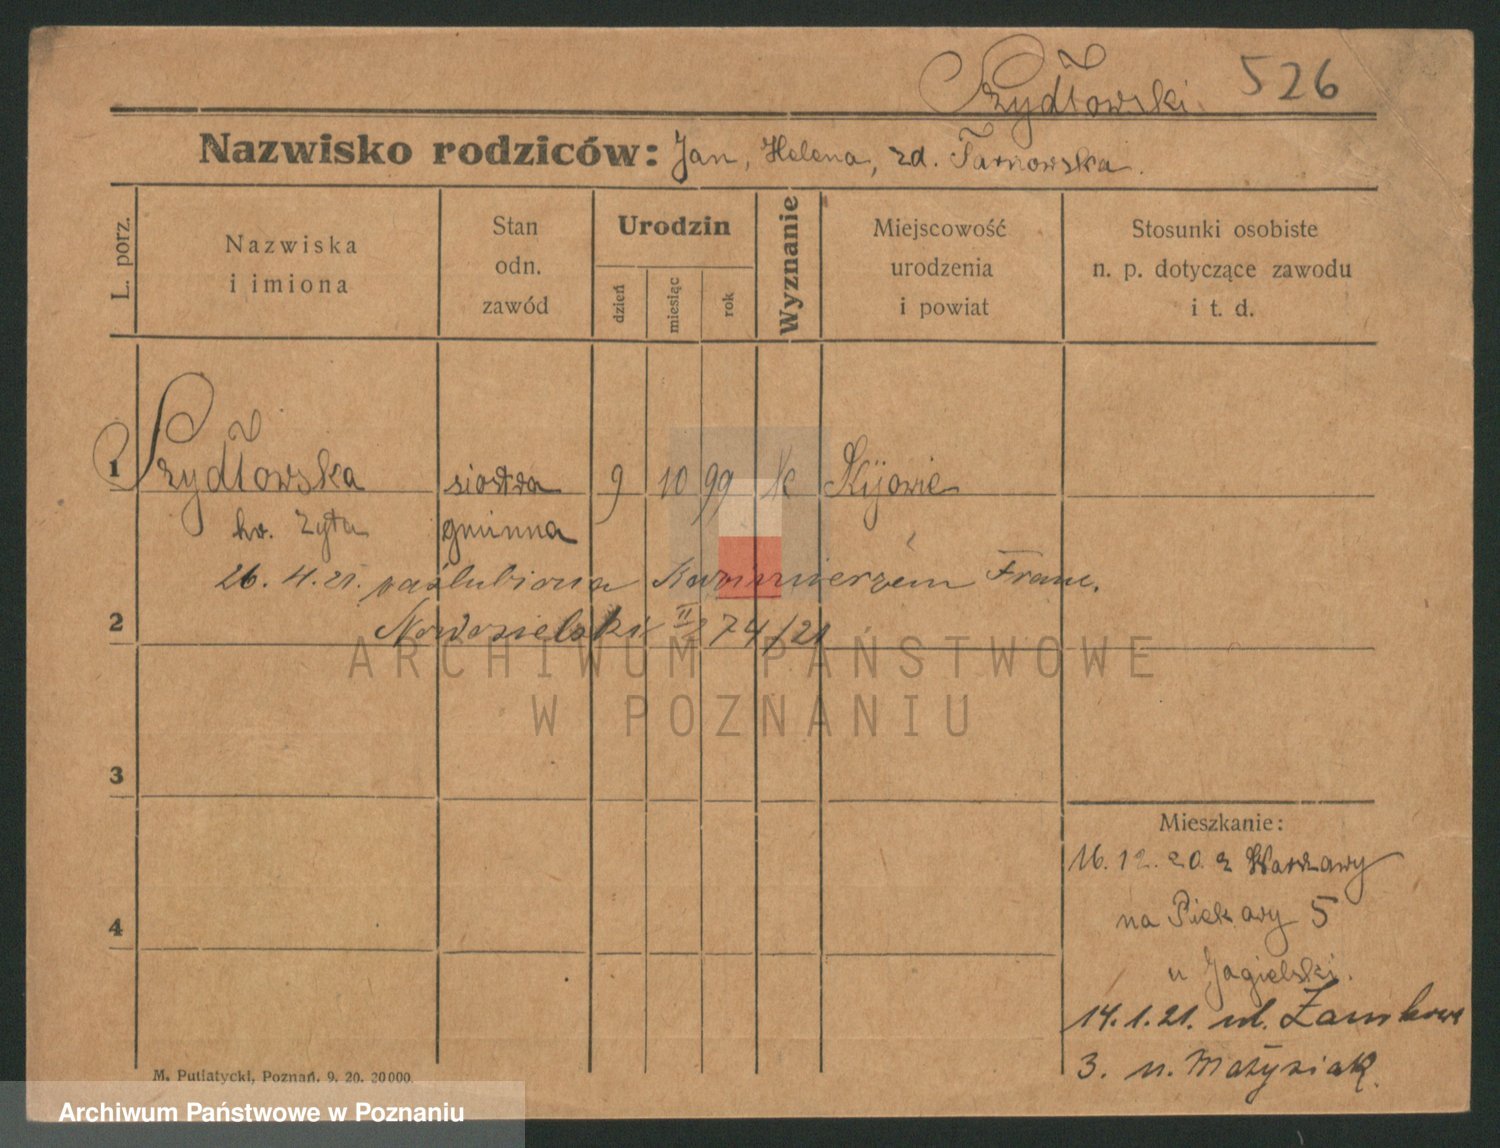 Szydłowski 526
Nazwisko rodziców: Jan, Helena, zd. Tarnowska.
L. porz.
Nazwiska
i imiona
Stan
odn.
zawód
Urodzin
dzień
miesiąc
rok
Wyznanie
Miejscowość
urodzenia
i powiat
Stosunki osobiste
n. p. dotyczące zawodu
i t. d.
1 Szydłowska siostra 9 10 99 k Kijowie
hr. Zyta gminna
26. 4. 21. paślubiona Kazimierzem Franc.
2 Nowosielski II 74/21
3
4
Mieszkanie:
16. 12. 20. z Warszawy
na Piekary 5
u Jagielski.
14. 1. 21. ul. Zamkowa
3. u. Matysiak.
M. Putiatycki, Poznań. 9. 20. 20000.
ARCHIWUM PAŃSTWOWE
W POZNANIU
Archiwum Państwowe w Poznaniu